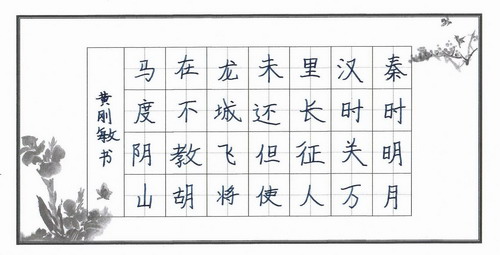 秦时明月
汉时关万
里长征人
未还但使
龙城飞将
在不教胡
马度阴山
黄刚敏书